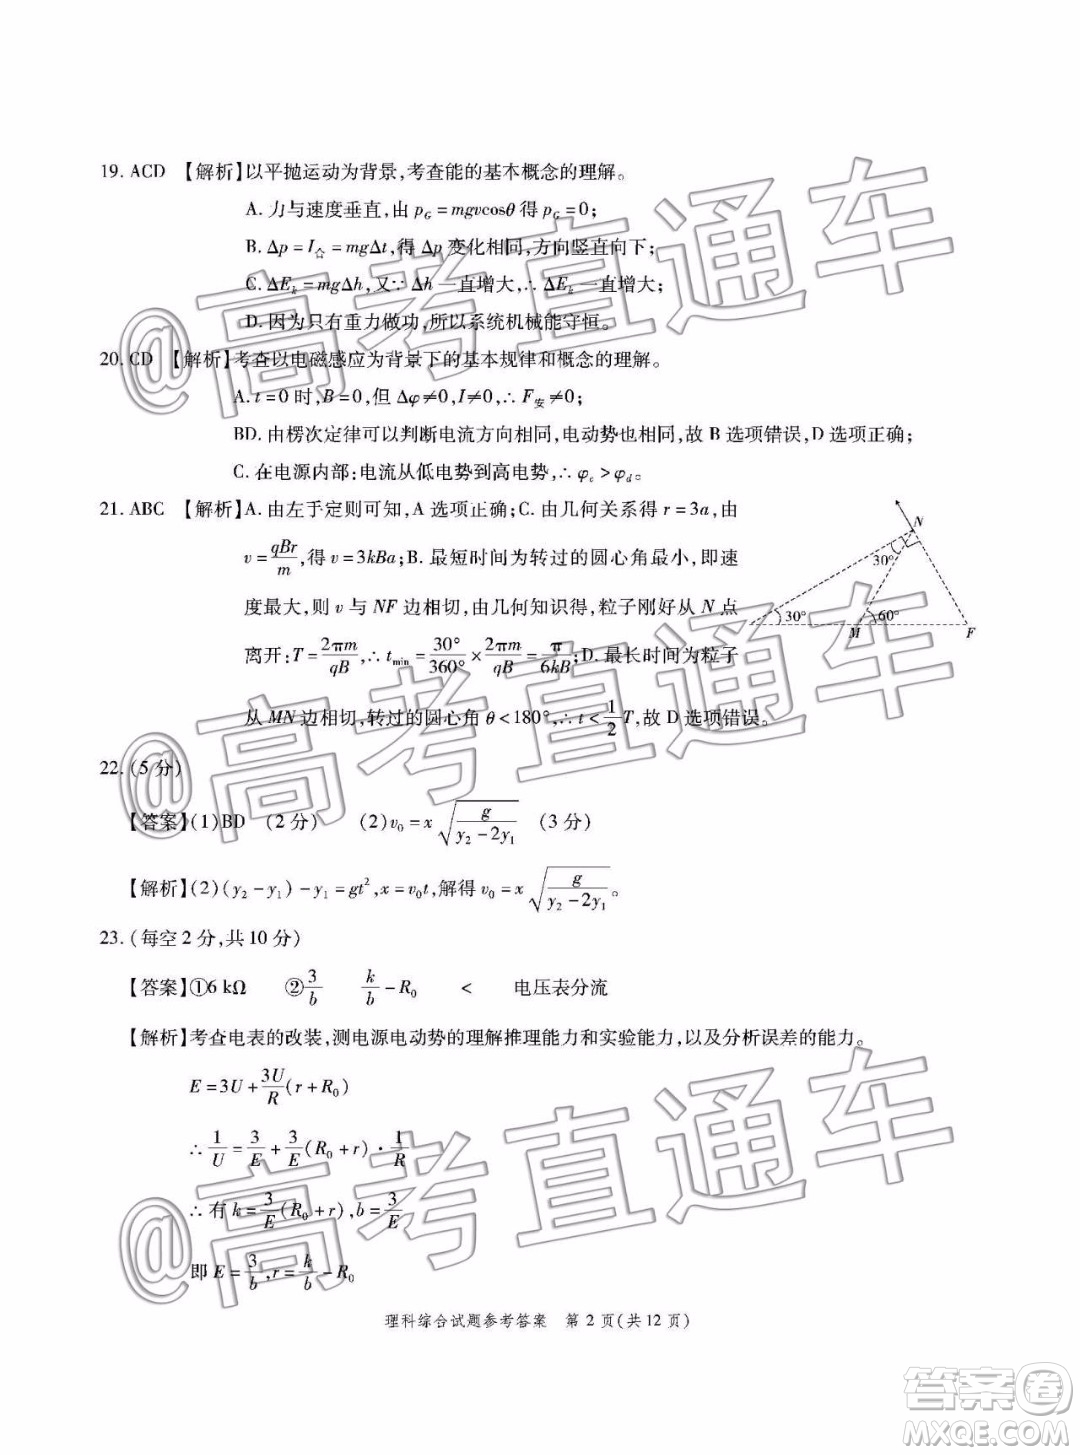 19. ACD 【解析】以平抛运动为背景,考查能的基本概念的理解。
A. 力与速度垂直,由 p_G = mgvcosθ 得 p_G = 0;
B. Δp = I_合 = mgΔt,得 Δp 变化相同,方向竖直向下;
C. ΔE_k = mgΔh,又∵ Δh 一直增大,∴ ΔE_k 一直增大;
D. 因为只有重力做功,所以系统机械能守恒。
20. CD 【解析】考查以电磁感应为背景下的基本规律和概念的理解。
A. t = 0 时,B = 0,但 Δφ≠0,I≠0,∴ F_安≠0;
BD. 由楞次定律可以判断电流方向相同,电动势也相同,故 B 选项错误,D 选项正确;
C. 在电源内部:电流从低电势到高电势,∴ φ_c > φ_d。
21. ABC 【解析】A. 由左手定则可知,A 选项正确;C. 由几何关系得 r = 3a,由
v = qBr/m,得 v = 3kBa;B. 最短时间为转过的圆心角最小,即速
度最大,则 v 与 NF 边相切,由几何知识得,粒子刚好从 N 点
离开:T = 2πm/qB,∴ t_min = 30°/360° × 2πm/qB = π/6kB;D. 最长时间为粒子
从 MN 边相切,转过的圆心角 θ < 180°,∴ t < 1/2 T,故 D 选项错误。
N
30°
30°
60°
M
F
22. (5 分)
【答案】(1)BD (2 分) (2)v₀ = x√(g/(y₂ - 2y₁)) (3 分)
【解析】(2)(y₂ - y₁) - y₁ = gt²,x = v₀t,解得 v₀ = x√(g/(y₂ - 2y₁))。
23. (每空 2 分,共 10 分)
【答案】①6 kΩ ②3/b k/b - R₀ < 电压表分流
【解析】考查电表的改装,测电源电动势的理解推理能力和实验能力,以及分析误差的能力。
E = 3U + 3U/R (r + R₀)
∴ 1/U = 3/E + 3/E (R₀ + r) · 1/R
∴ 有 k = 3/E (R₀ + r),b = 3/E
即 E = 3/b,r = k/b - R₀
理科综合试题参考答案 第 2 页(共 12 页)
@高考直通车
@高考直通车
@高考直通车
答案卷
MXQE.COM